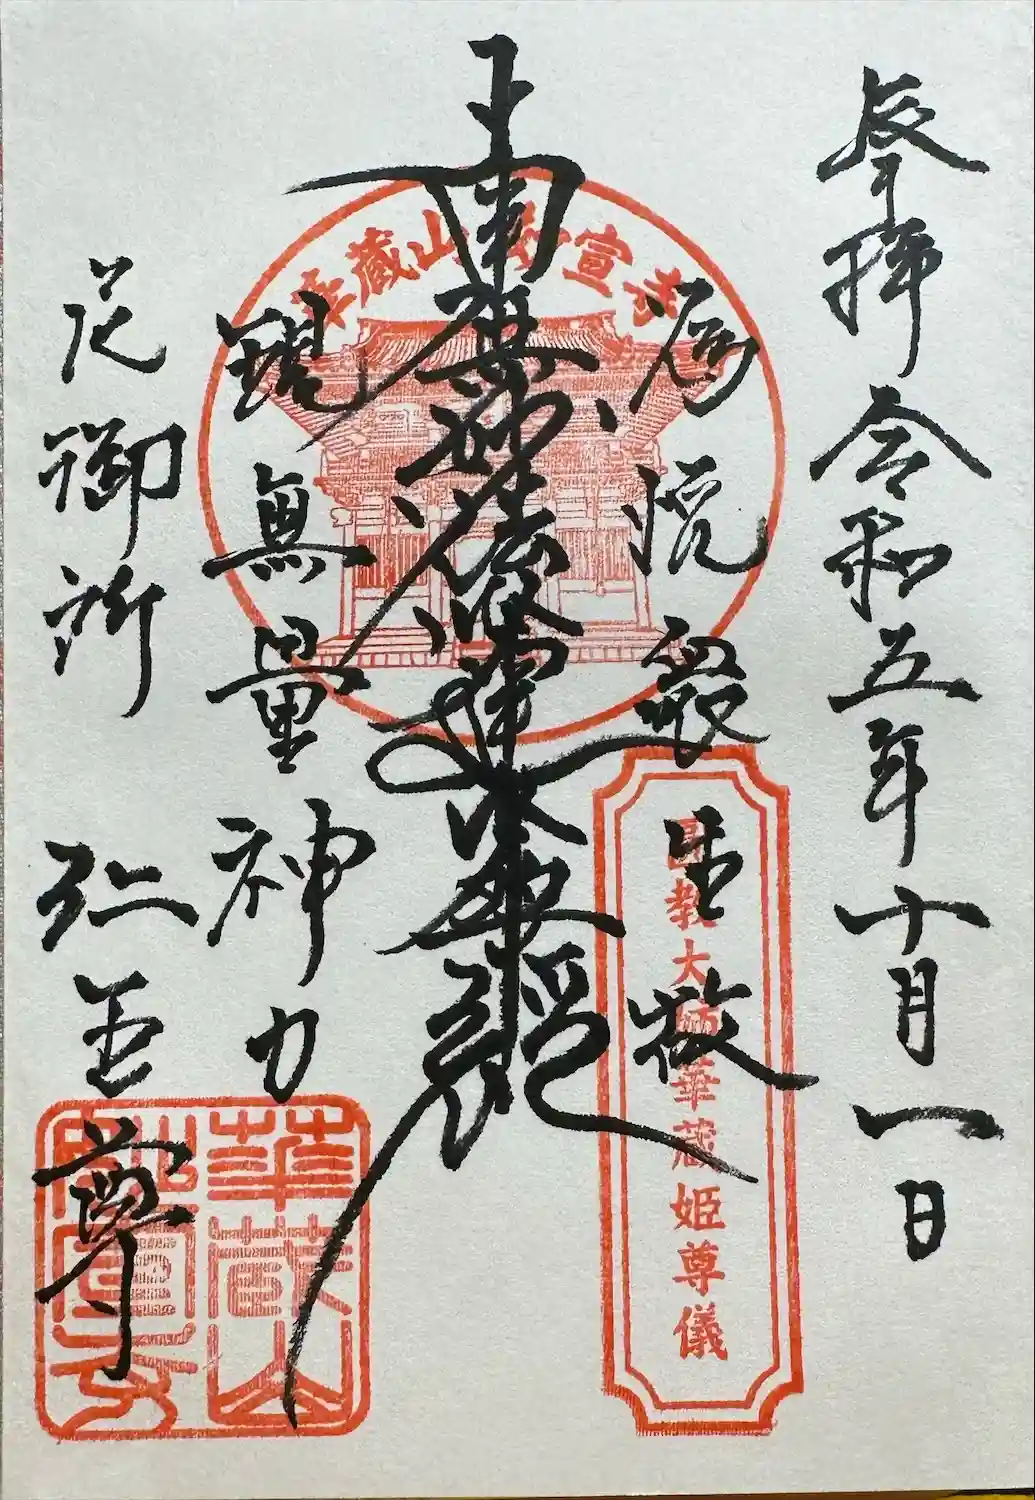 奉拝 令和五年十月一日
為悦衆生故
南無妙法蓮華経
現無量神力
花御所
華蔵山妙宣寺
教大師華蔵姫尊儀
華蔵山
妙宣寺